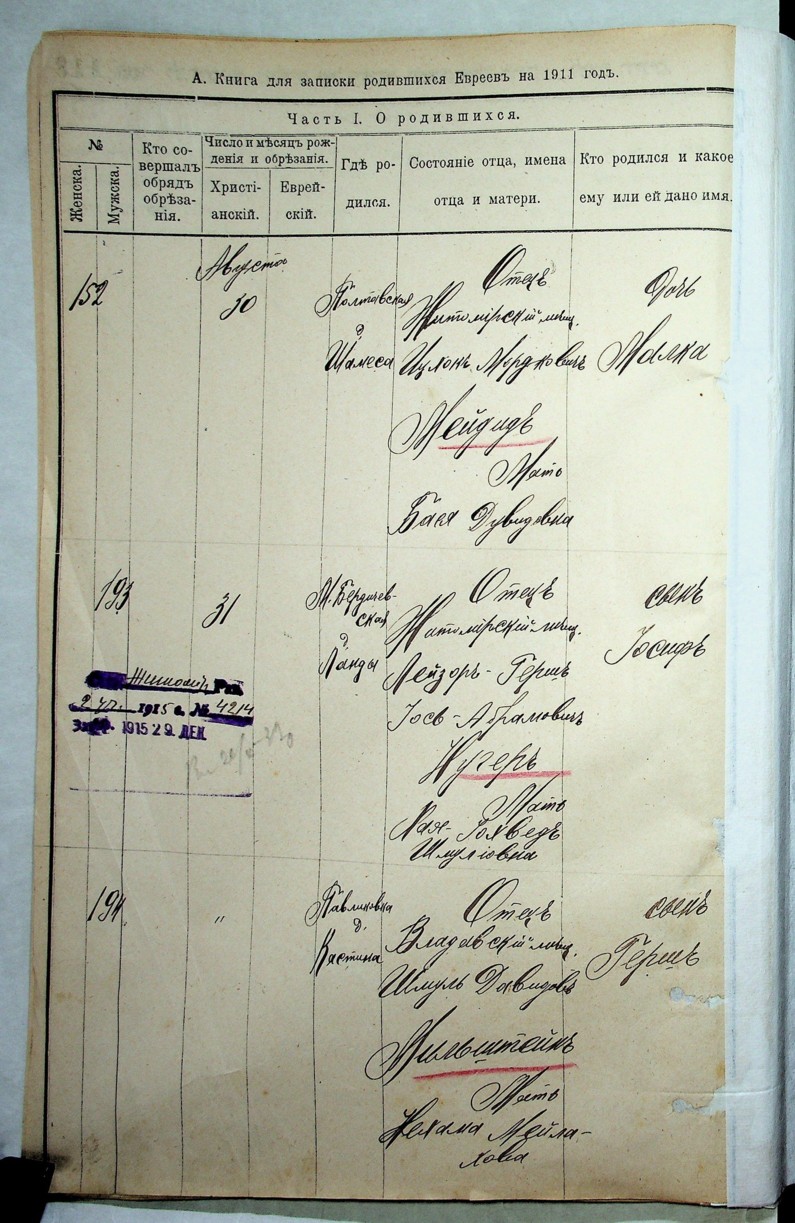 А. Книга для записки родившихся Евреевъ на 1911 годъ.
Часть I. О родившихся.
№
Женска.
Мужска.
Кто со-
вершалъ
обрядъ
обрѣза-
нія.
Число и мѣсяцъ рож-
денія и обрѣзанія.
Христі-
анскій.
Еврей-
скій.
Гдѣ ро-
дился.
Состояніе отца, имена
отца и матери.
Кто родился и какое
ему или ей дано имя.
Августа
152
30
Полтавская
д
Шамеса
Отецъ
Житомірскій мѣщ.
Мордковичъ
Мейдидъ
Мать
Бася Дувидовна
Дочь
Малка
193
31
М. Бердичев-
ская
д
Ланды
Отецъ
Житомірскій мѣщ.
Лейзоръ-Гершъ
Іось-Абрамовичъ
Кугеръ
Мать
Хая-Іохведъ
Шмуліовна
сынъ
Іосифъ
1915 г. № 4214
1915 29. ДЕК
194
"
Павликовка
д.
Костина
Отецъ
мѣщ.
Шмуль Давидовъ
Мильштейнъ
Мать
Нехама Мейла-
хова
сынъ
Гершъ